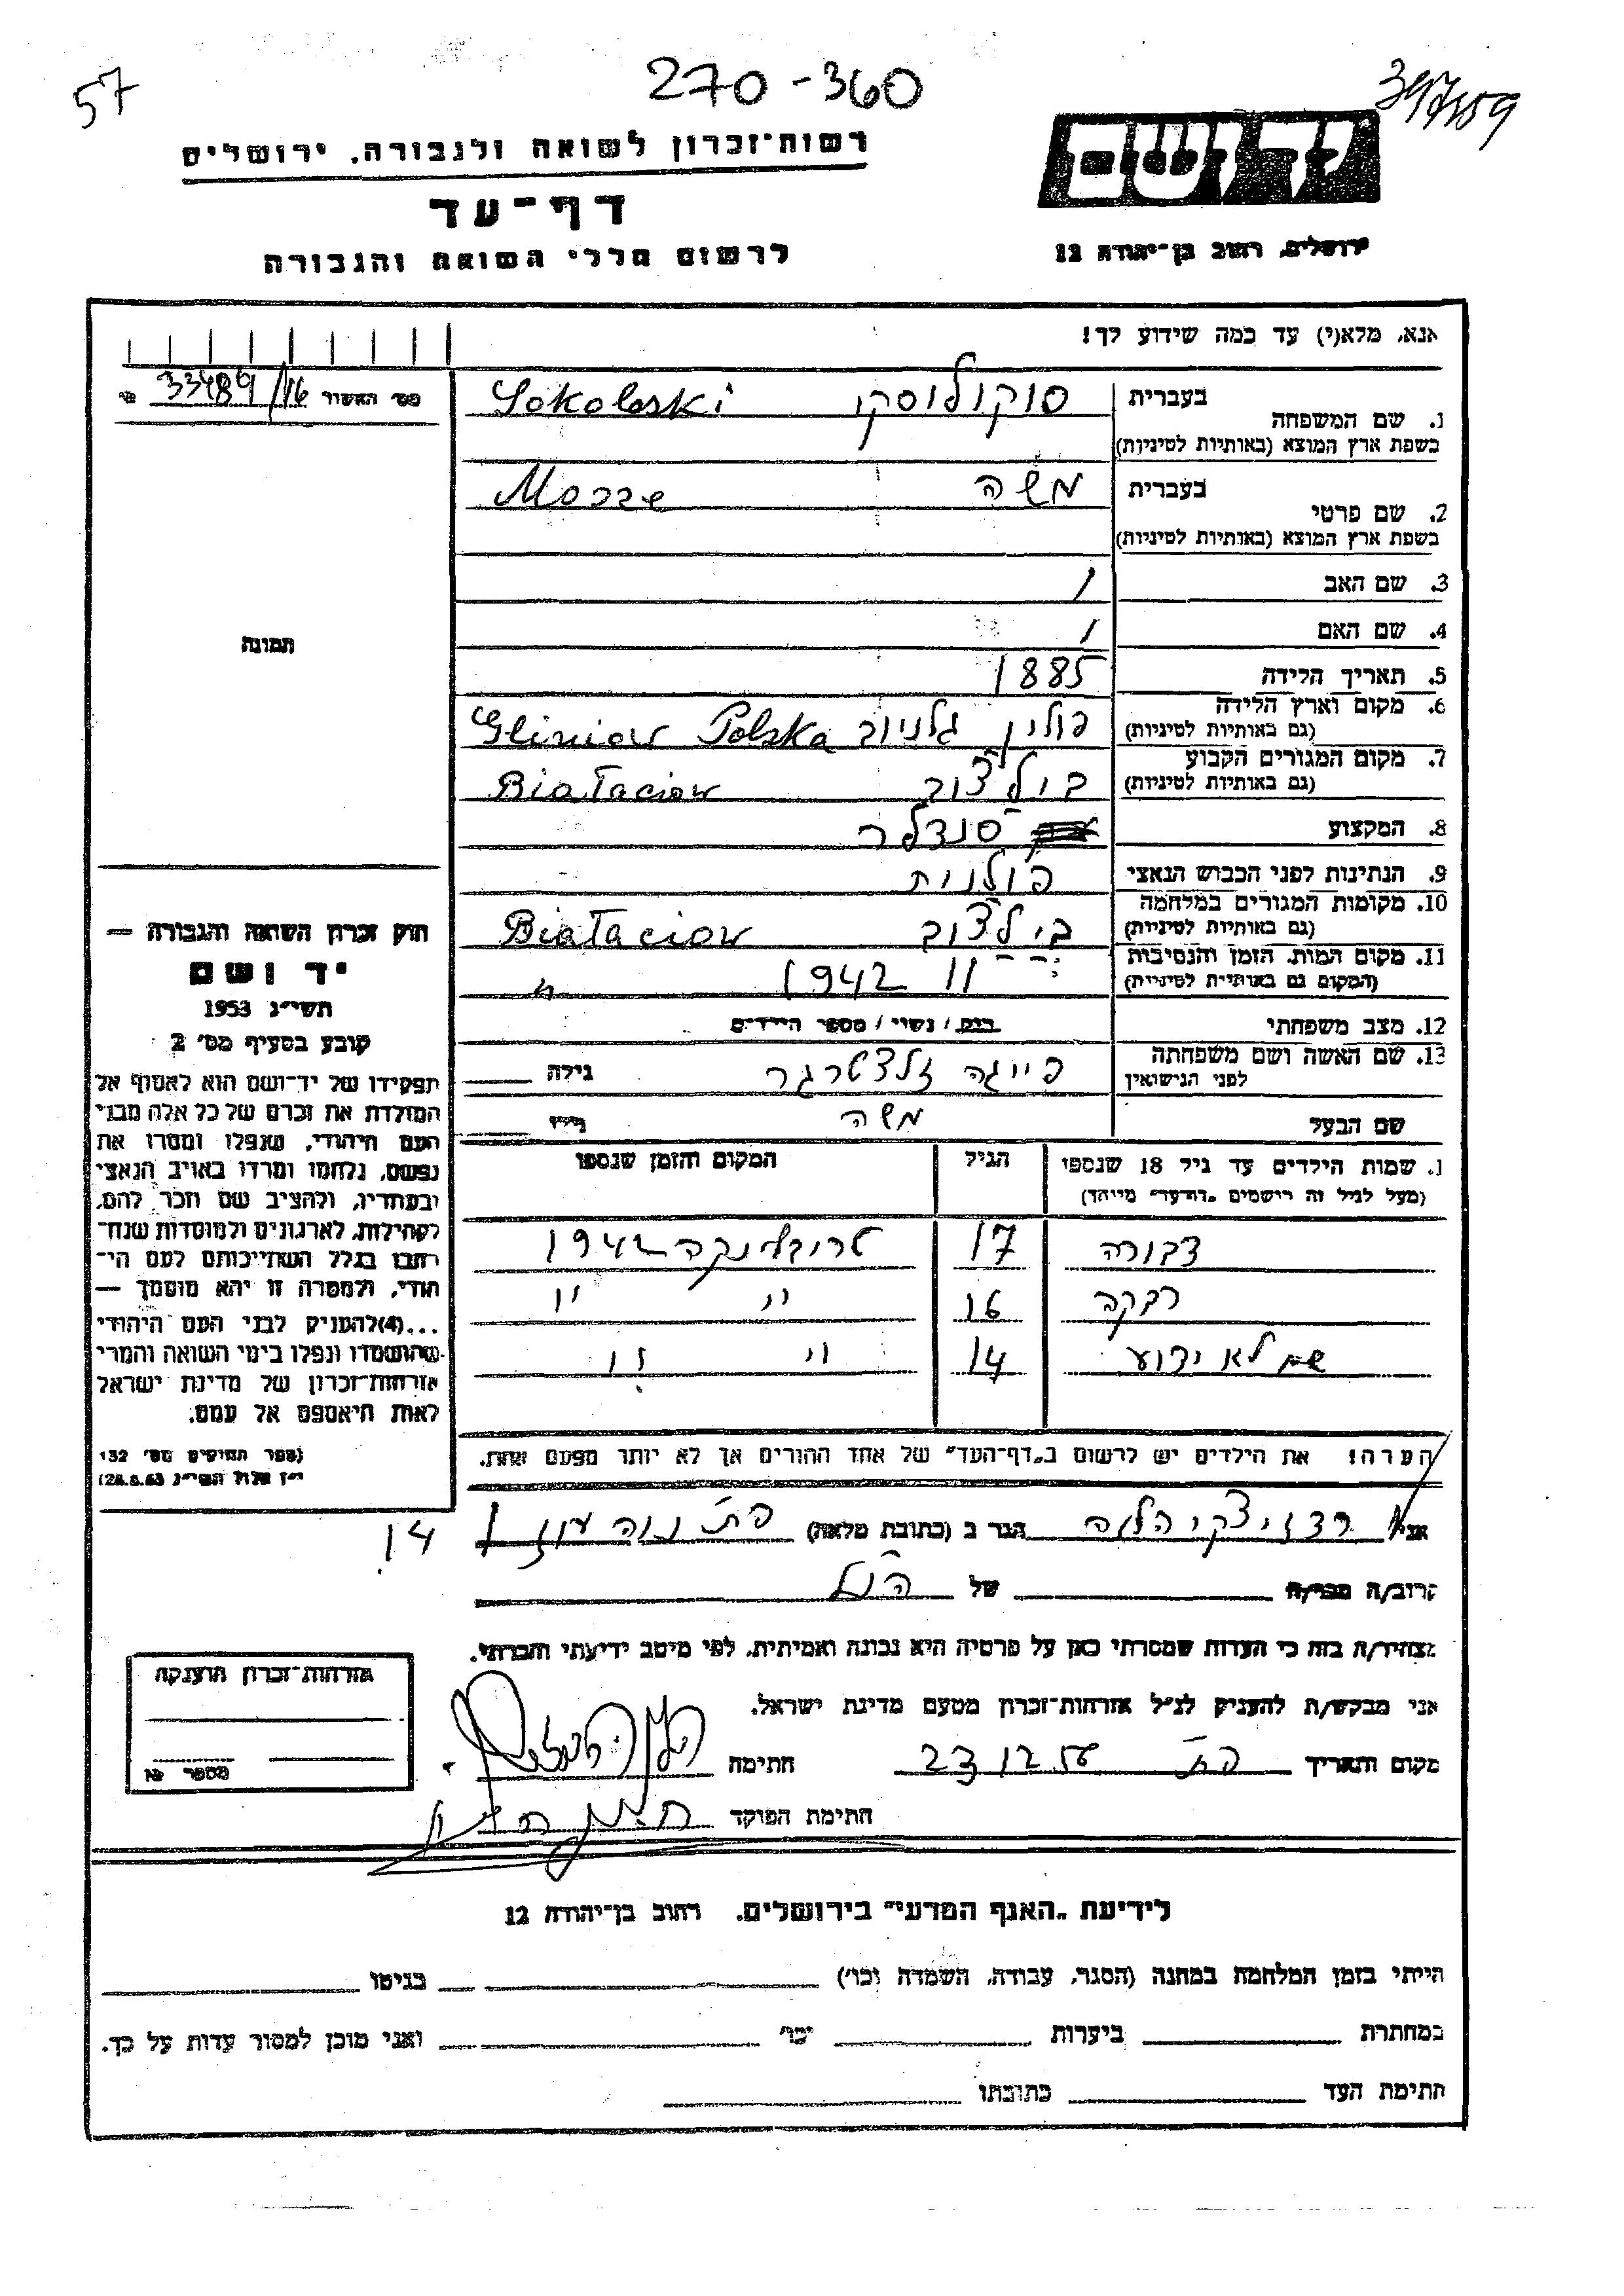 57
270-360
רשות־זכרון לשואה ולגבורה. ירושלים
יד ושם
דף־עד
לרשום חללי השואה והגבורה
ירושלים, רחוב בן־יהודה 12
אנא, מלא(י) עד כמה שידוע לך!
מס׳ האשור № 33489/16
1. שם המשפחה בעברית סוקולוסקי Sokoloski
בשפת ארץ המוצא (באותיות לטיניות)
2. שם פרטי בעברית משה Mosze
בשפת ארץ המוצא (באותיות לטיניות)
3. שם האב /
4. שם האם /
תמונה
5. תאריך הלידה 1885
6. מקום וארץ הלידה פולין גלניוב Gliniow Polska
(גם באותיות לטיניות)
7. מקום המגורים הקבוע
(גם באותיות לטיניות)
8. המקצוע סנדלר
9. הנתינות לפני הכבוש הנאצי פולנית
10. מקומות המגורים במלחמה
(גם באותיות לטיניות)
11. מקום המות, הזמן והנסיבות 1942 "
(המקום גם באותיות לטיניות)
12. מצב משפחתי רווק / נשוי / מספר הילדים
13. שם האשה ושם משפחתה פייגה גילה
לפני הנישואין
שם הבעל משה גילו
1. שמות הילדים עד גיל 18 שנספו הגיל המקום והזמן שנספו
(מעל לגיל זה רישמים "דף־עד" מייחד)
דבורה 17 טרבלינקה 1942
רבקה 16 " "
שם לא ידוע 14 " "
חוק זכרון השואה והגבורה —
יד ושם
תשי״ג 1953
קובע בסעיף מס׳ 2
תפקידו של יד־ושם הוא לאסוף אל
המולדת את זכרם של כל אלה מבני
העם היהודי, שנפלו ומסרו את
נפשם, נלחמו ומרדו באויב הנאצי
ובעוזריו, ולהציב שם וזכר להם,
לקהילות, לארגונים ולמוסדות שנח־
רבו בגלל השתייכותם לעם הי־
הודי, ולמטרה זו יהא מוסמך —
...(4)להעניק לבני העם היהודי
שהושמדו ונפלו בימי השואה והמרי
אזרחות־זכרון של מדינת ישראל
לאות היאספם אל עמם.
(ספר החוקים מס׳ 132
י״ז אלול תשי״ג 28.8.53)
הערה! את הילדים יש לרשום ב"דף־העד" של אחד ההורים אך לא יותר מפעם אחת.
אני הגר ב (כתובת מלאה)
14
קרוב/ה מכר/ה של הנ"ל
מצהיר/ה בזה כי העדות שמסרתי כאן על פרטיה היא נכונה ואמיתית, לפי מיטב ידיעתי והכרתי.
אני מבקש/ת להעניק לנ״ל אזרחות־זכרון מטעם מדינת ישראל.
מקום ותאריך 23.12.56 חתימה
חתימת הפוקד
אזרחות־זכרון הוענקה
מספר №
לידיעת "האגף המדעי" בירושלים. רחוב בן־יהודה 12
הייתי בזמן המלחמה במחנה (הסגר, עבודה, השמדה וכו׳) בגיטו
במחתרת ביערות וכו׳ ואני מוכן למסור עדות על כך.
חתימת העד כתובתו